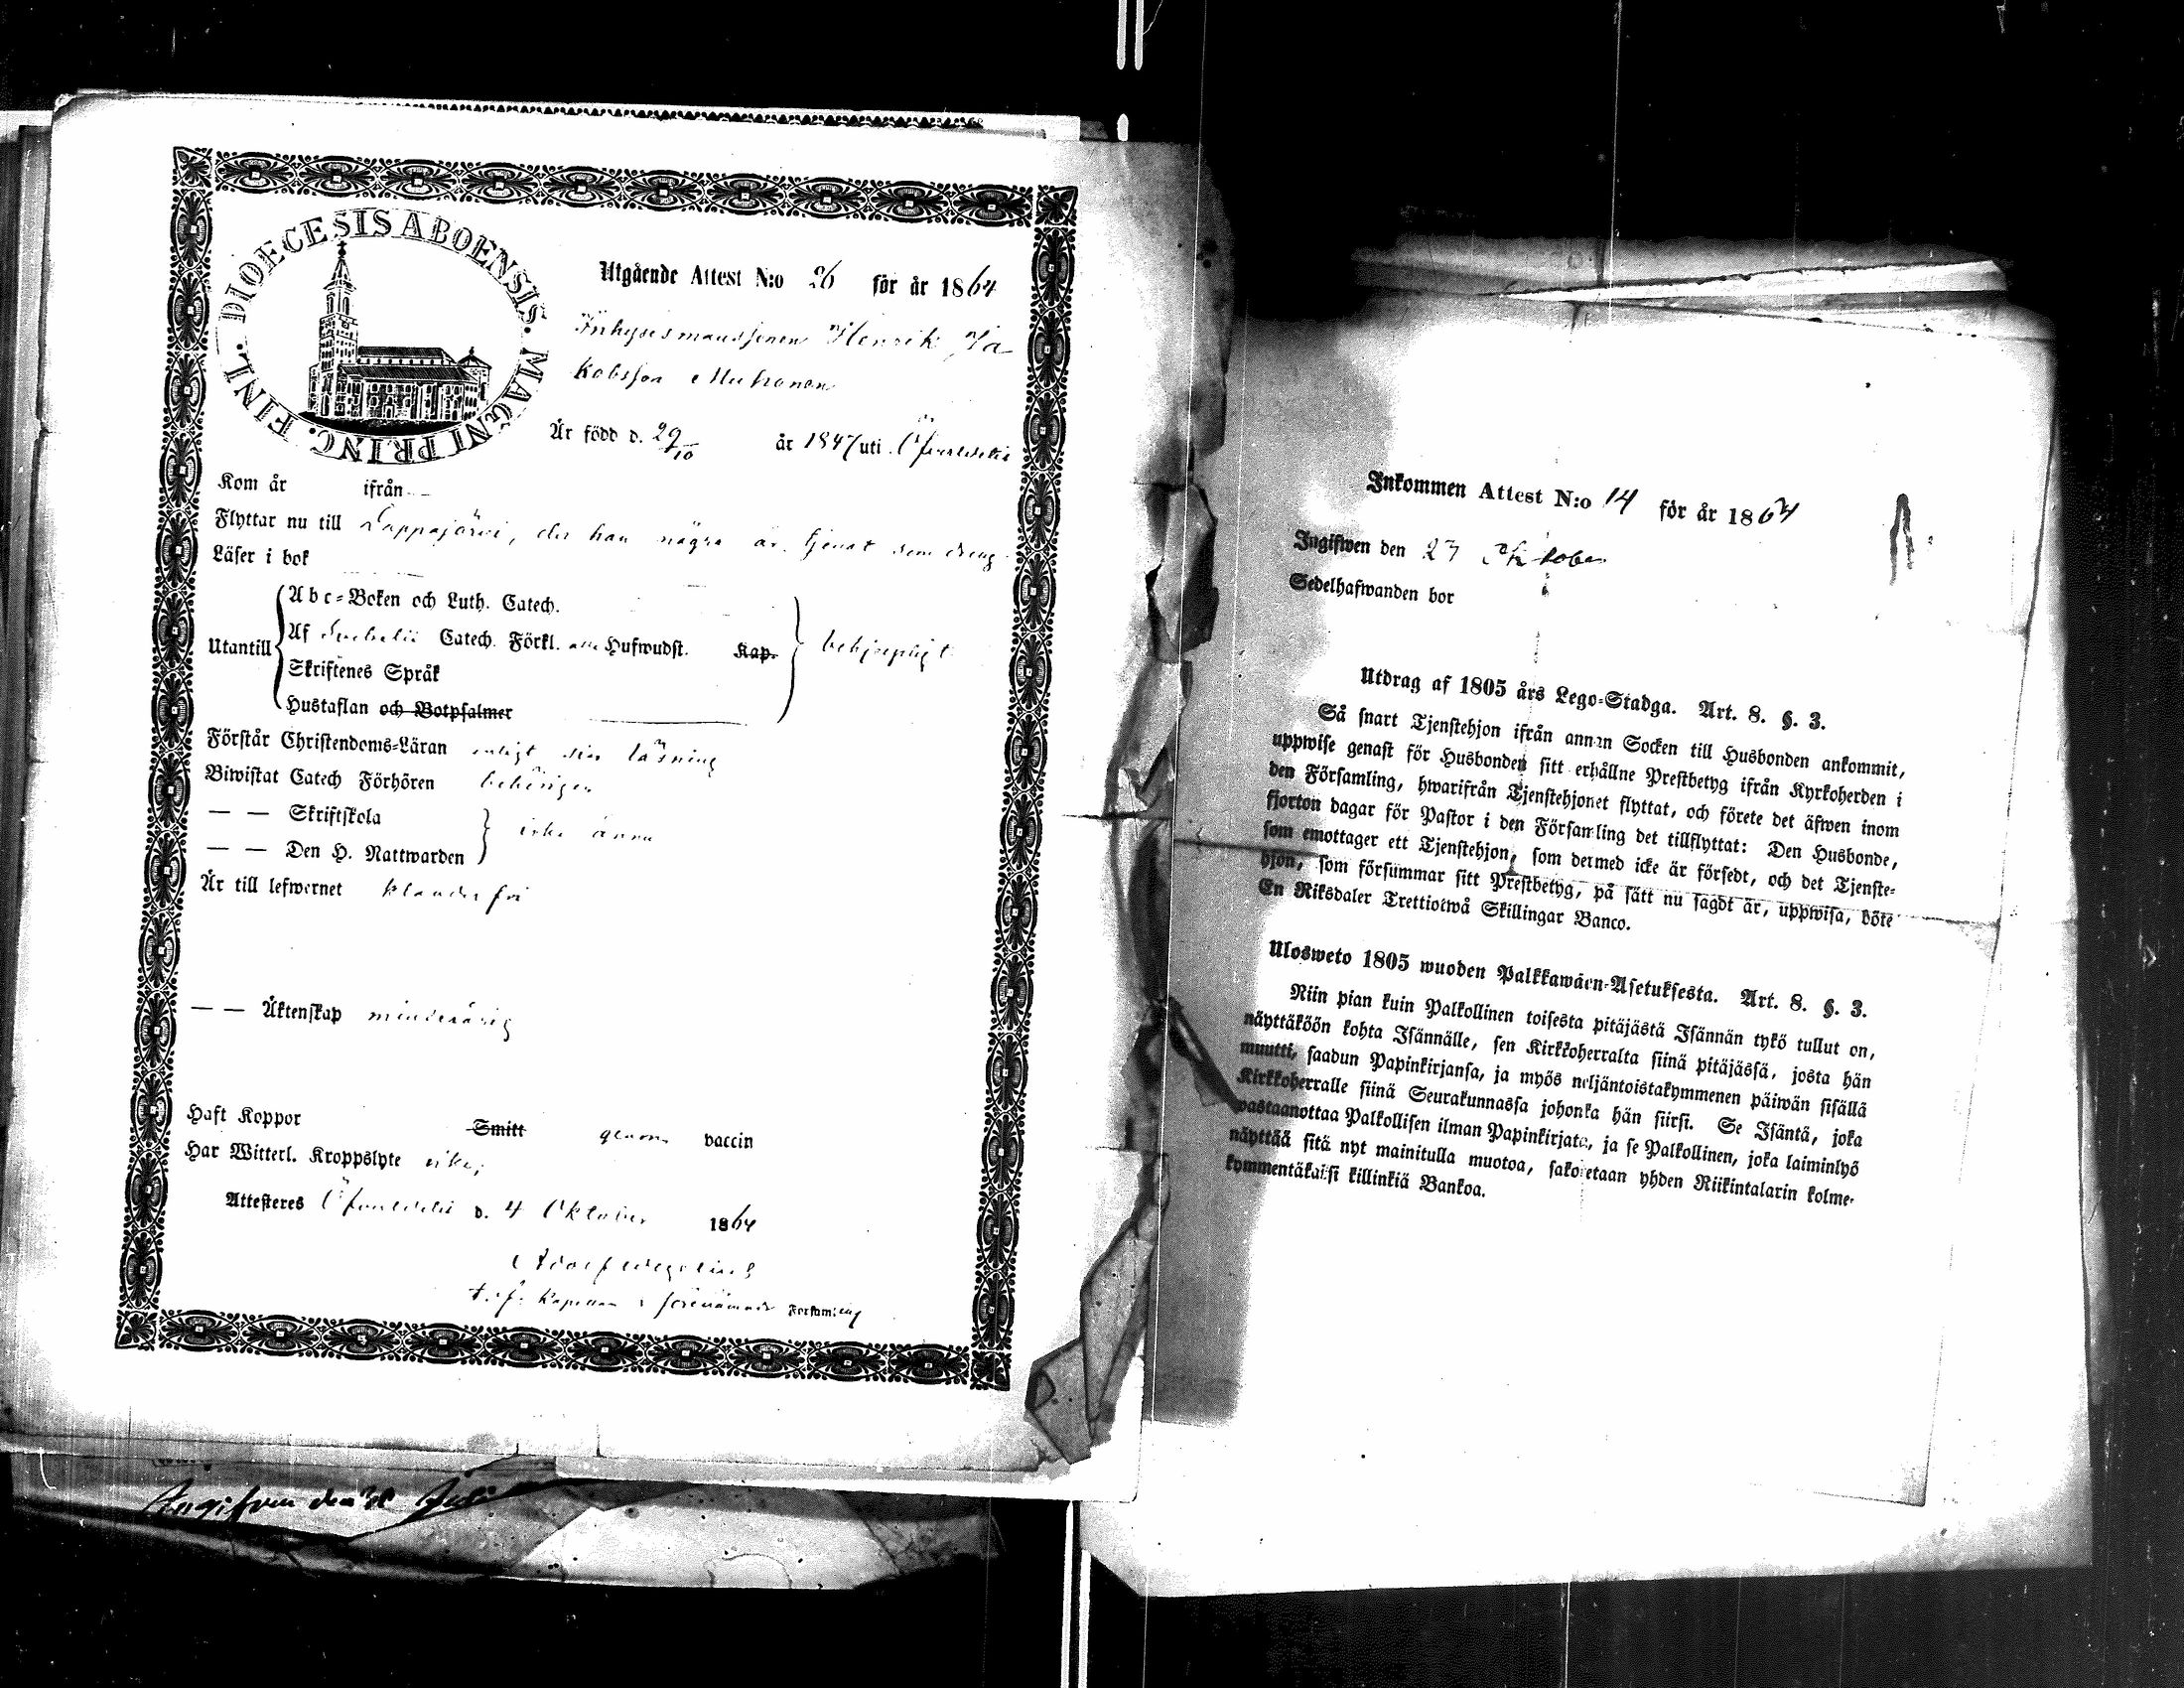 DIOECESIS ABOENSIS. MAGNI PRINC. FINL.
Utgående Attest N:o 26 för år 1864
Inhysesmanssonen Henrik Ja
kobsson
Är född d. 29/10 år 1847 uti
Kom år ifrån
Flyttar nu till Lappajärvi, der han några år tjenat som dreng
Läser i bok
Utantill
Abc-Boken och Luth. Catech.
Af Svebelii Catech. Förkl. alla Hufwudst. Kap.
Skriftenes Språk
Hustaflan och Botpsalmer
behjepligt
Förstår Christendoms-Läran enligt sin läsning
Biwistat Catech Förhören behörigen
— — Skriftskola
— — Den H. Nattwarden
icke ännu
Är till lefwernet klanderfri
— — Äktenskap minderårig
Haft Koppor Smitt genom vaccin
Har Witterl. Kroppslyte icke;
Attesteras d. 4 Oktober 1864
Adolf
t. f. Kapellan i förenämnde Församl:ing
Ingifven den
Inkommen Attest N:o 14 för år 1864
Ingifwen den 27 Oktober
Sedelhafwanden bor
Utdrag af 1805 års Lego-Stadga. Art. 8. §. 3.
Så snart Tjenstehjon ifrån annan Socken till Husbonden ankommit,
uppwise genast för Husbonden sitt erhållne Prestbetyg ifrån Kyrkoherden i
den Församling, hwarifrån Tjenstehjonet flyttat, och förete det äfwen inom
fjorton dagar för Pastor i den Församling det tillflyttat: Den Husbonde,
som emottager ett Tjenstehjon, som dermed icke är försedt, och det Tjenste-
hjon, som försummar sitt Prestbetyg, på sätt nu sagdt är, uppwisa, böte
En Riksdaler Trettiotwå Skillingar Banco.
Ulosweto 1805 wuoden Palkkawäen-Asetuksesta. Art. 8. §. 3.
Niin pian kuin Palkollinen toisesta pitäjästä Isännän tykö tullut on,
näyttäköön kohta Isännälle, sen Kirkkoherralta siinä pitäjässä, josta hän
muutti, saadun Papinkirjansa, ja myös neljäntoistakymmenen päiwän sisällä
Kirkkoherralle siinä Seurakunnassa johonka hän siirsi. Se Isäntä, joka
wastaanottaa Palkollisen ilman Papinkirjata, ja se Palkollinen, joka laiminlyö
näyttää sitä nyt mainitulla muotoa, sakotetaan yhden Riikintalarin kolme-
kymmentäkaksi killinkiä Bankoa.